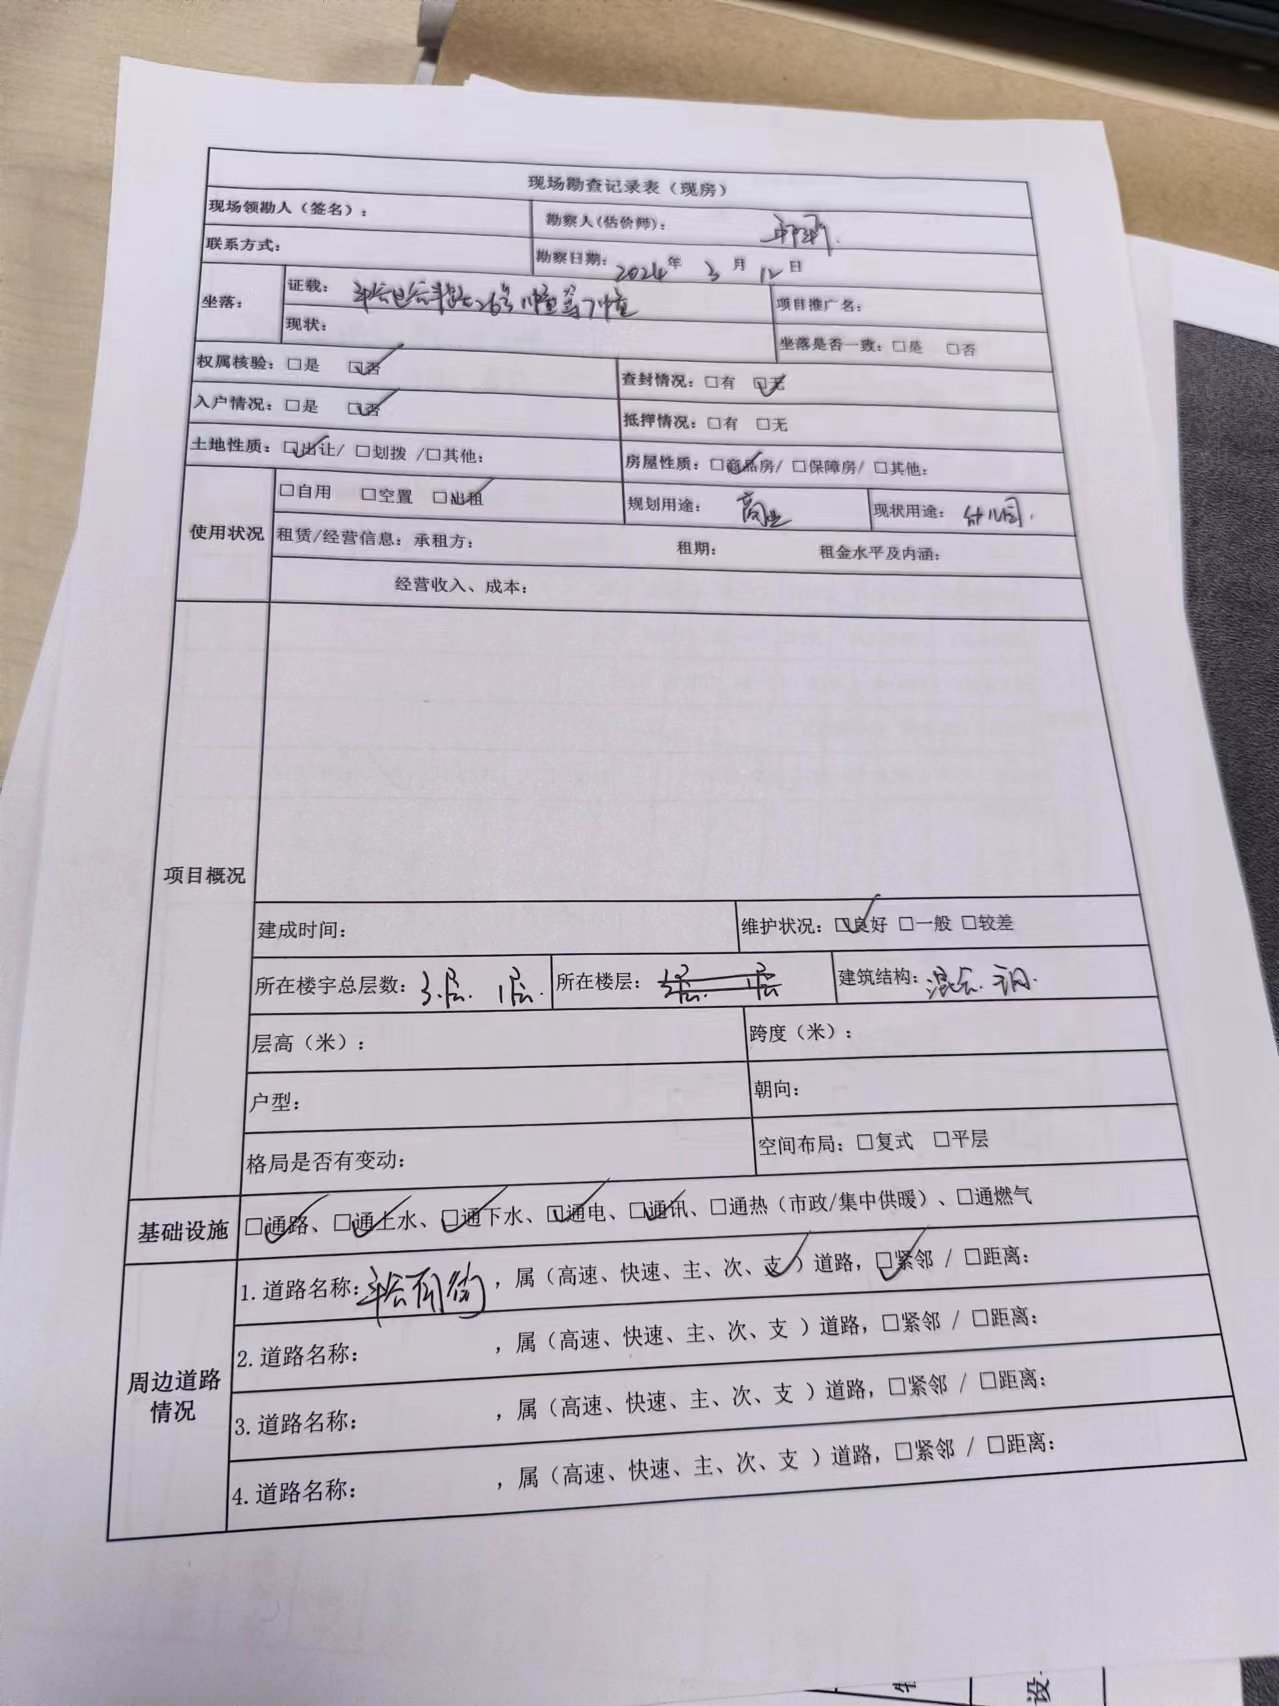 现场勘查记录表（现房）
现场领勘人（签名）： 勘察人（估价师）：
联系方式： 勘察日期：2024年 3月 12日
坐落： 证载： 26号1幢等7幢 项目推广名：
现状： 坐落是否一致：□是 □否
权属核验：□是 ☑否 查封情况：□有 ☑无
入户情况：□是 ☑否 抵押情况：□有 □无
土地性质：☑出让/ □划拨 /□其他： 房屋性质：☑商品房/ □保障房/ □其他：
使用状况 □自用 □空置 ☑出租 规划用途： 商业 现状用途： 幼儿园.
租赁/经营信息：承租方： 租期： 租金水平及内涵：
经营收入、成本：
项目概况
建成时间： 维护状况：☑良好 □一般 □较差
所在楼宇总层数：3层. 1层. 所在楼层：3层. 1层 建筑结构：混合. 钢.
层高（米）： 跨度（米）：
户型： 朝向：
格局是否有变动： 空间布局：□复式 □平层
基础设施 ☑通路、☑通上水、☑通下水、☑通电、☑通讯、□通热（市政/集中供暖）、□通燃气
周边道路情况 1.道路名称： ，属（高速、快速、主、次、支✓）道路，☑紧邻 / □距离：
2.道路名称： ，属（高速、快速、主、次、支 ）道路，□紧邻 / □距离：
3.道路名称： ，属（高速、快速、主、次、支 ）道路，□紧邻 / □距离：
4.道路名称： ，属（高速、快速、主、次、支 ）道路，□紧邻 / □距离：
设